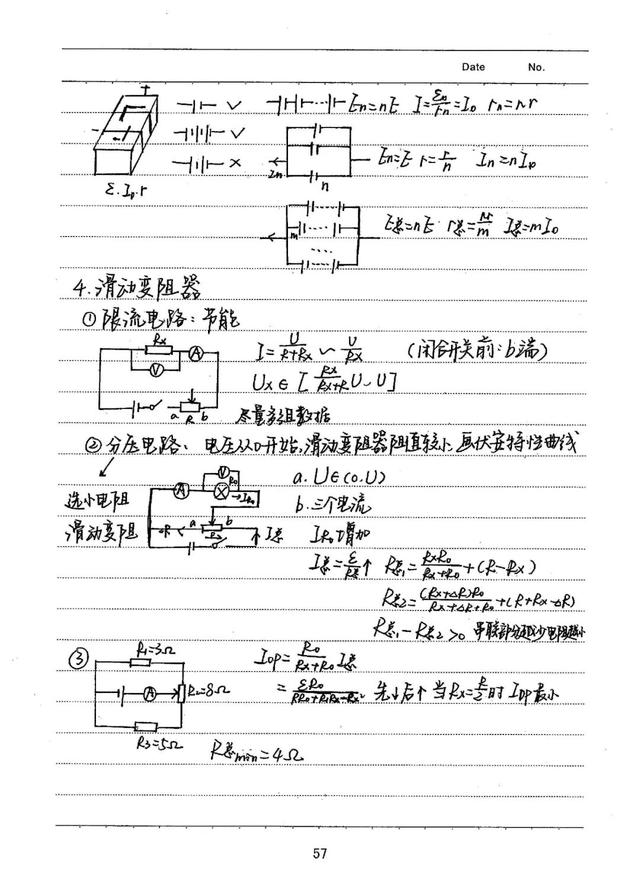 Date No.
+ ✓ En=nE I=ε0/rn=I0 rn=nr
- ✓ En=E r=r/n In=nI0
× In n
ε.I0.r
m E总=nE r总=nr/m I总=mI0
4.滑动变阻器
①限流电路:节能
Rx A V a R b I=U/R+Rx ~ U/Rx (闭合开关前:b端)
Ux∈[Rx/Rx+R U ~ U]
尽量多组数据
②分压电路、电压从0开始,滑动变阻器阻值较小,画伏安特性曲线
选小电阻 A V R0 a.U∈(0.U)
滑动变阻 a b I总 b.三个电流
IR0增加
I总=ε/R总↑ R总1=RxR0/Rx+R0+(R-Rx)
R总2=(Rx+ΔR)R0/Rx+ΔR+R0+(R+Rx-ΔR)
R总1-R总2>0 串联部分减少电阻越小
③ R1=3Ω A R2=8Ω R3=5Ω IOP=R0/Rx+R0 I总
=εR0/RR0+RRx-Rx² 先↓后↑ 当Rx=R/2时IOP最小
R总min=4Ω
57